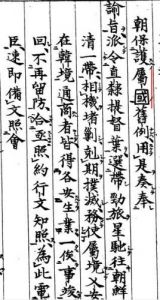 朝保護屬國舊例用是奏奉
諭旨派令直隸提督葉選帶勁旅星馳往朝鮮
清一帶相機堵剿剋期撲滅務使屬境乂安
在韓境通商者皆得各安生業一俟事竣
回不再留防亟照約行文知照爲此電
臣速即備文照會